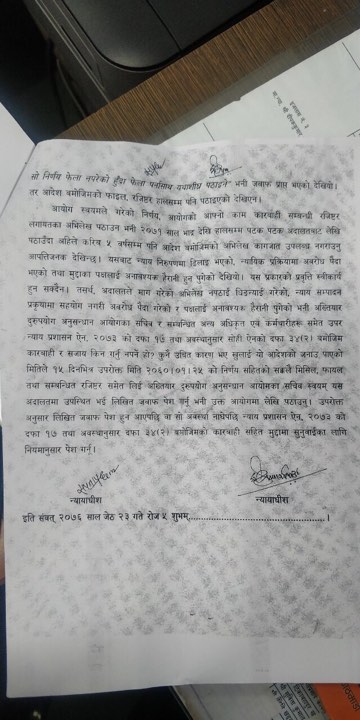 सो निर्णय फेला नपरेको हुँदा फेला पर्नासाथ यथाशीघ्र पठाइने" भनी जवाफ प्राप्त भएको देखियो।
तर आदेश बमोजिमको फाइल, रजिष्टर हालसम्म पनि पठाइएको देखिएन।
आयोग स्वयमले गरेको निर्णय, आयोगको आफ्नो काम कारवाही सम्बन्धी रजिष्टर
लगायतका अभिलेख पठाउन भनी २०७१ साल भाद्र देखि हालसम्म पटक पटक अदालतबाट लेखि
पठाउँदा अहिले करिब ५ वर्षसम्म पति आदेश बमोजिमको अभिलेख कागजात उपलब्ध नगराउनु
आपत्तिजनक देखिन्छ। यसबाट न्याय निरुपणमा ढिलाइ भएको, न्यायिक प्रक्रियामा अवरोध पैदा
भएको तथा मुद्दाका पक्षलाई अनावश्यक हैरानी हुन पुगेको देखियो। यस प्रकारको प्रवृत्ति स्वीकार्य
हुन सक्दैन। तसर्थ, अदालतले माग गरेको अभिलेख नपठाई ढिङग्याई गरेको, न्याय सम्पादन
प्रकृयामा सहयोग नगरी अवरोध पैदा गरेको र पक्षलाई अनावश्यक हैरानी पुगेको भनी अख्तियार
दुरुपयोग अनुसन्धान आयोगका सचिव र सम्बन्धित अन्य अधिकृत एवं कर्मचारीहरू समेत उपर
न्याय प्रशासन ऐन, २०७३ को दफा १७ तथा अवस्थानुसार सोही ऐनको दफा ३४(२) बमोजिम
कारवाही र सजाय किन गर्नु नपर्ने हो? कुनै उचित कारण भए खुलाई यो आदेशको जनाउ पाएको
मितिले १५ दिनभित्र उपरोक्त मिति २०६०।०१।२५ को निर्णय सहितको सक्कलै मिसिल, फायल
तथा सम्बन्धित रजिष्टर समेत लिई अख्तियार दुरुपयोग अनुसन्धान आयोगका सचिव स्वयम् यस
अदालतमा उपस्थित भई लिखित जवाफ पेश गर्नु भनी उक्त आयोगमा लेखी पठाउनु। उपरोक्त
अनुसार लिखित जवाफ पेश हुन आएपछि वा सो अवस्था नाघेपछि न्याय प्रशासन ऐन, २०७३ को
दफा १७ तथा अवस्थानुसार दफा ३४(२) बमोजिमको कारवाही सहित मुद्दामा सुनुवाईका लागि
नियमानुसार पेश गर्नु।
न्यायाधीश
न्यायाधीश
इति संवत् २०७६ साल जेठ २३ गते रोज ५ शुभम्...............................................।